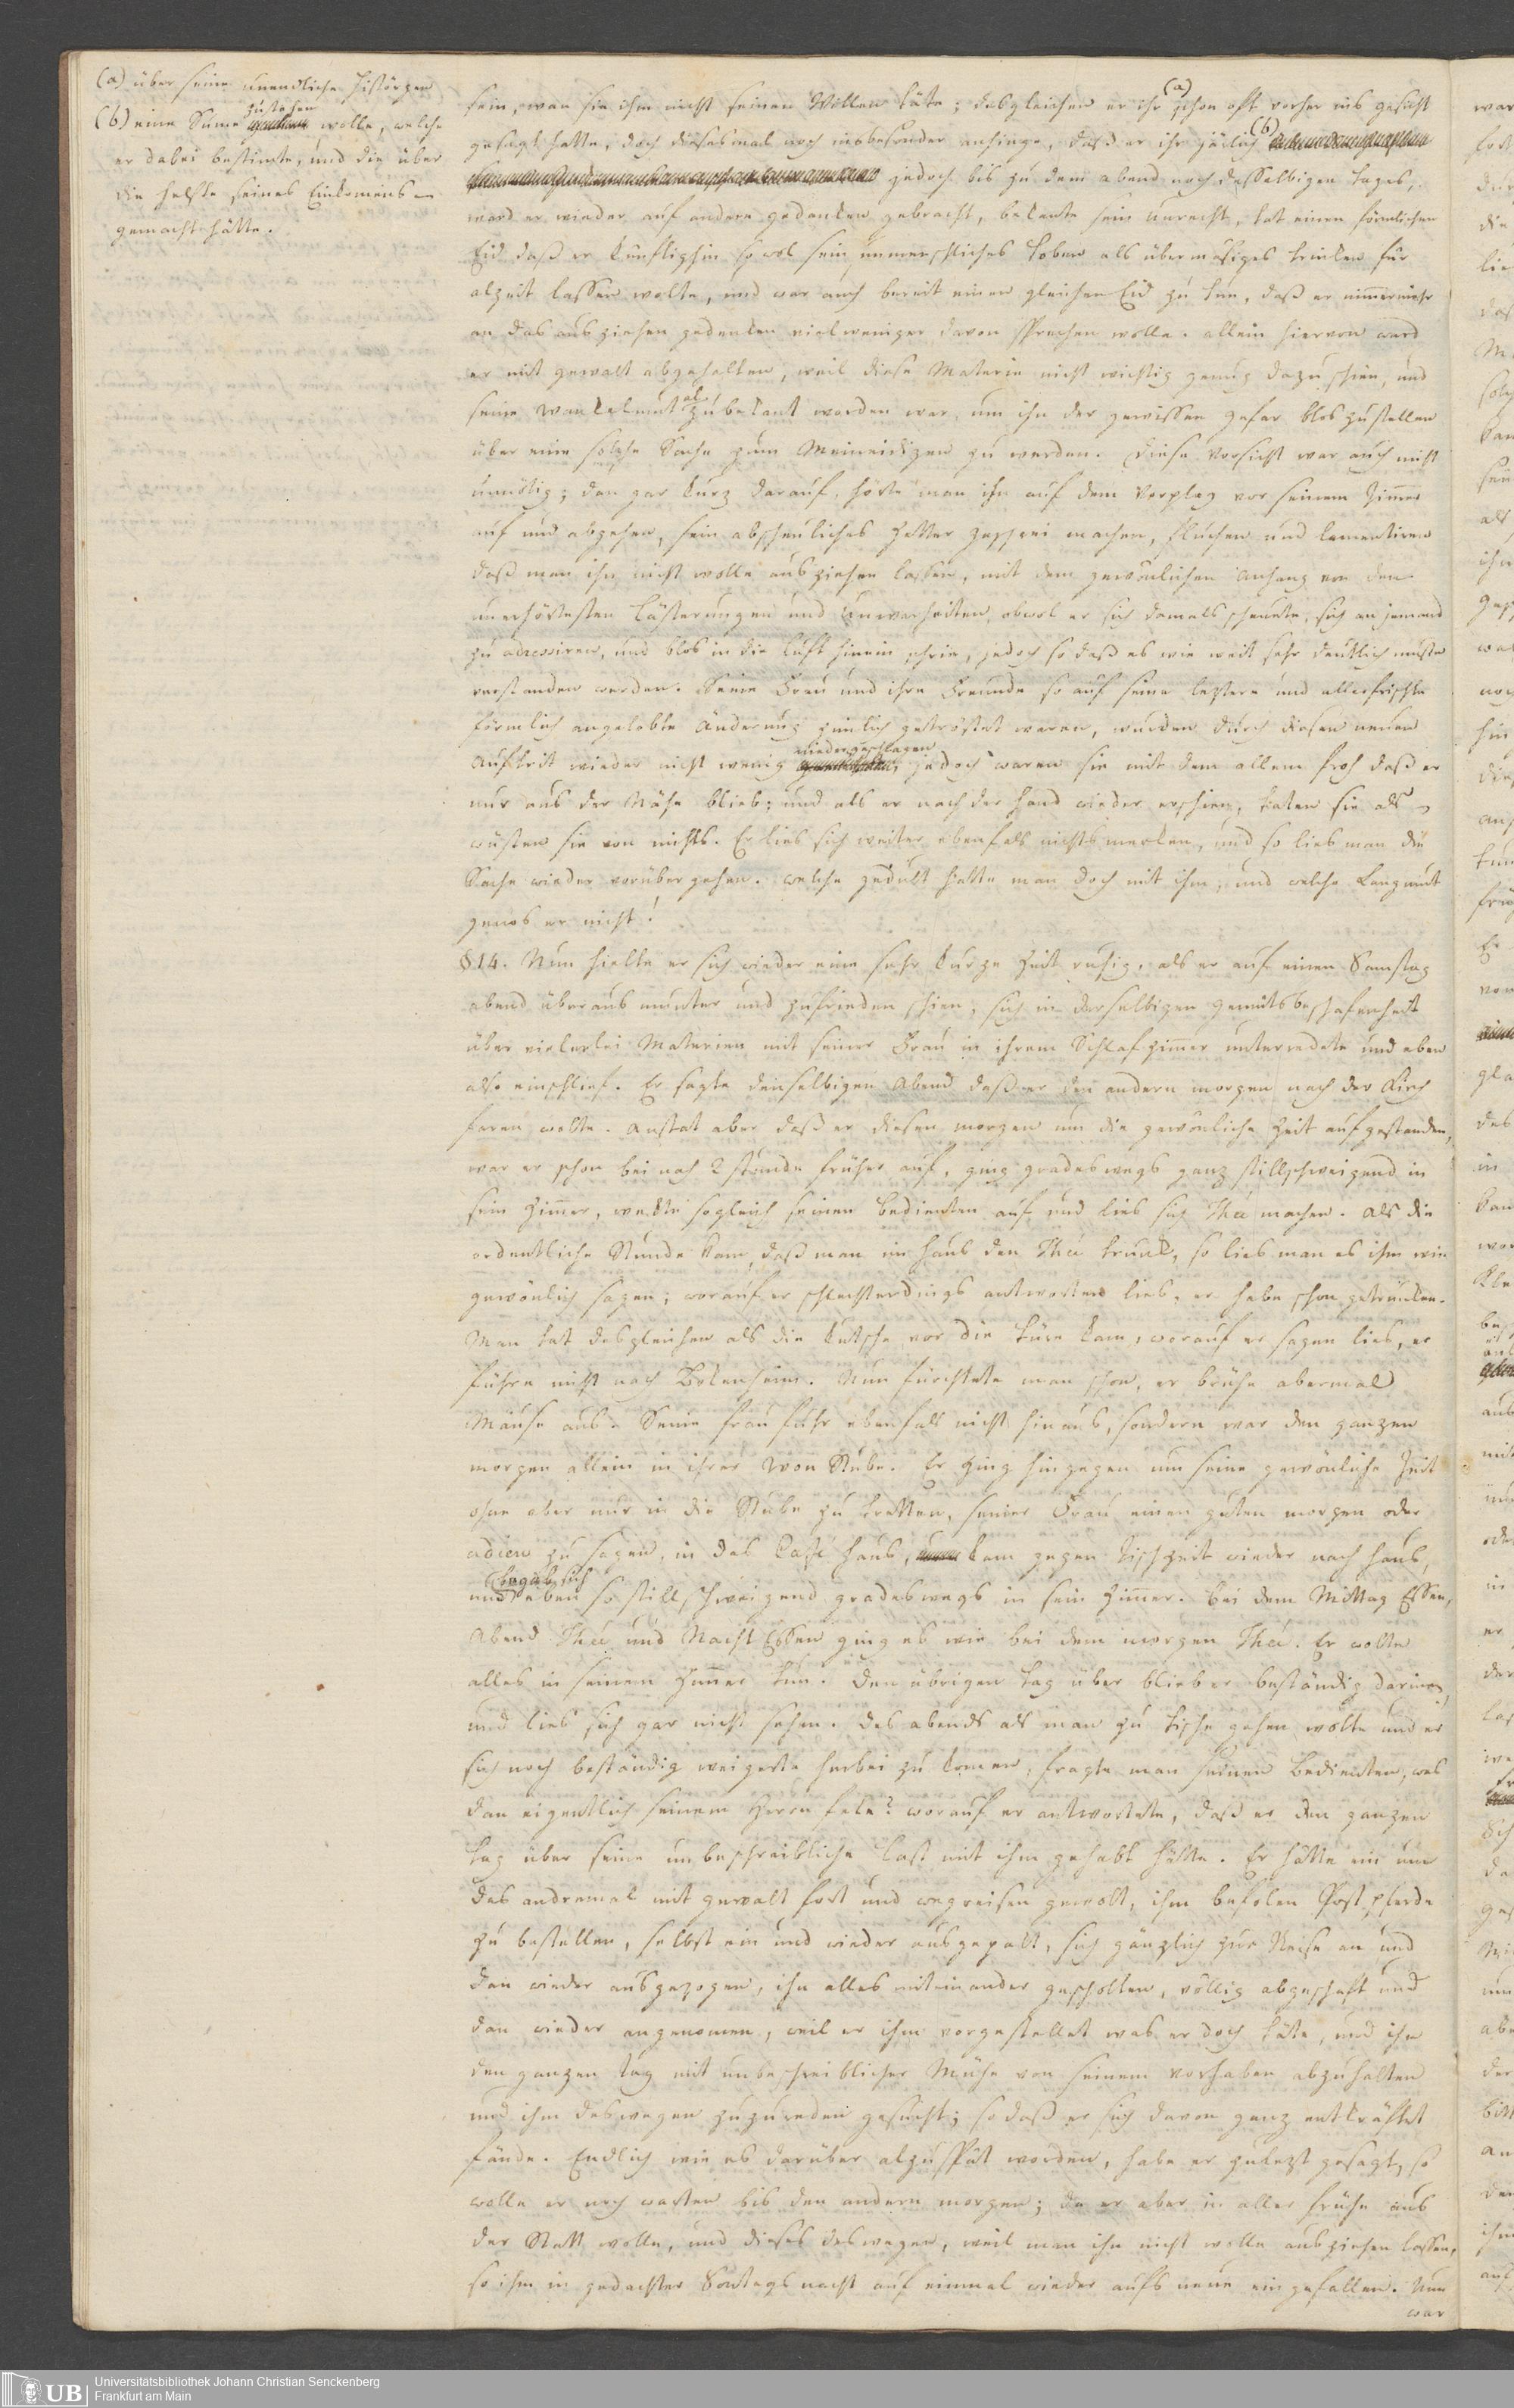 (a) über seine unendliche Histörgen
(b) eine Sume zustehen wolle, welche
er dabei bestimte, und die über
die helfte seines Einkomens
gemacht hätte.
(a)
sein, wan sie ihm nicht seinen Willen täte; desgleichen er ihr schon oft vorher ins gesicht
(b)
gesagt hatte, doch diesesmal noch insbesonder anhinge, daß er ihr järlich
jedoch bis zu dem abend noch desselbigen tages,
ward er wieder auf andere gedanken gebracht, bekante sein unrecht, tat einen förmlichen
Eid daß er künftighin so wol sein unmenschliches toben als übermäsiges trinken für
alzeit lassen wolte, und war auch bereit einen gleichen Eid zu tun, daß er nimmermehr
an das ausziehen gedenken vielweniger davon sprechen wolle. allein hiervon ward
er mit gewalt abgehalten, weil diese Materie nicht wichtig genug dazu schien, und
seine Wankelmut al zu bekant worden war, um ihn der gewissen gefar blos zustellen
über eine solche Sache zum Meineidigen zu werden. Diese Vorsicht war auch nicht
unnötig; dan gar kurz darauf, hörte man ihn auf dem Vorplaz vor seinem Zimmer
auf und abgehen, sein abscheuliches Zetter geschrei machen, fluchen und lamentiren
daß man ihn nicht wolle ausziehen lassen, mit dem gewönlichen Anhang von den
unerhörtesten Lästerungen und Unwarheiten, obwol er sich damals scheuete, sich an jemand
zu adressiren, und blos in die Luft hinein schrie, jedoch so daß es wie weit sehr deutlich muste
verstanden werden. Seine Frau und ihre Freunde so auf seine leztere und allerfrischte
förmlich angelobte Änderung zimlich getröstet waren, wurden durch diesen neuen
Auftrit wieder nicht wenig niedergeschlagen, jedoch waren sie mit dem allem froh daß er
nur aus der Nähe blieb; und als er nach der hand wieder erschien, taten sie als
wüsten sie von nichts. Er lies sich weiter ebenfals nichts merken, und so lies man die
Sache wieder vorüber gehen. welche gedult hatte man doch mit ihm, und welche Langmut
genos er nicht!
§14. Nun hielte er sich wieder eine sehr kurze Zeit ruhig, als er auf einen Samstag
abend überaus munter und zufrieden schien, sich in derselbigen gemütsbeschafenheit
über vielerlei Materien mit seiner Frau in ihrem Schlafzimmer unterredete und eben
also einschlief. Er sagte denselbigen Abend daß er den andern morgen nach der Kirch
faren wolte. Anstat aber daß er diesen morgen um die gewönliche Zeit aufgestanden,
war er schon bei nah 2 stunde früher auf, ging gradeswegs ganz stillschweigend in
sein Zimmer, weckte sogleich seinen bedienten auf und lies sich Thée machen. als die
ordentliche Stunde kam, daß man im haus den Thée trunk, so lies man es ihm wie
gewönlich sagen; worauf er schlechterdings antworten lies, er habe schon getrunken.
Man tat desgleichen als die Kutsche vor die Türe kam, worauf er sagen lies, er
führe nicht nach Bokenheim. Nun fürchtete man schon, er brühe abermal
Mäuse aus. Seine frau fuhr ebenfals nicht hinaus, sondern war den ganzen
morgen allein in ihrer Won Stube. Er ging hingegen um seine gewönliche Zeit
ohne aber nur in die Stube zu tretten, seiner Frau einen guten morgen oder
adieu zu sagen, in das Caffé haus, kam gegen Tischzeit wieder nach haus,
und begab sich eben so stillschweigend gradeswegs in sein Zimmer. bei dem Mittag Essen,
Abend Thée und Nacht Essen ging es wie bei dem morgen Thée. Er wolte
alles in seinem Zimmer tun. Den übrigen tag über blieb er beständig darinen,
und lies sich gar nicht sehen. des abends als man zu tische gehen wolte und er
sich noch beständig weigerte herbei zu komen, fragte man seinen bedienten, was
dan eigentlich seinem Herrn fele? worauf er antwortete, daß er den ganzen
tag über seine unbeschreibliche last mit ihm gehabt hätte. Er hätte ein um
das andremal mit gewalt fort und wegreisen gewolt, ihm befolen Postpferde
zu bestellen, selbst ein und wieder ausgepakt, sich gänzlich zur Reise an und
dan wieder ausgezogen, ihn alles miteinander gescholten, völlig abgeschaft und
dan wieder angenomen, weil er ihm vorgestellet was er doch täte, und ihn
den ganzen tag mit unbeschreiblicher Mühe von seinem vorhaben abzuhalten
und ihm deswegen zuzureden gesucht; so daß er sich davon ganz entkräftet
fände. Endlich wie es darüber alzuspät worden, habe er zulezt gesagt, so
wolle er noch warten bis den andern morgen; da er aber in aller frühe aus
der Statt wolle, und dieses deswegen, weil man ihn nicht wolle ausziehen lassen,
so ihm in gedachter Sontags nacht auf einmal wieder aufs neue eingefallen. Nun
war
UB Universitätsbibliothek Johann Christian Senckenberg
Frankfurt am Main